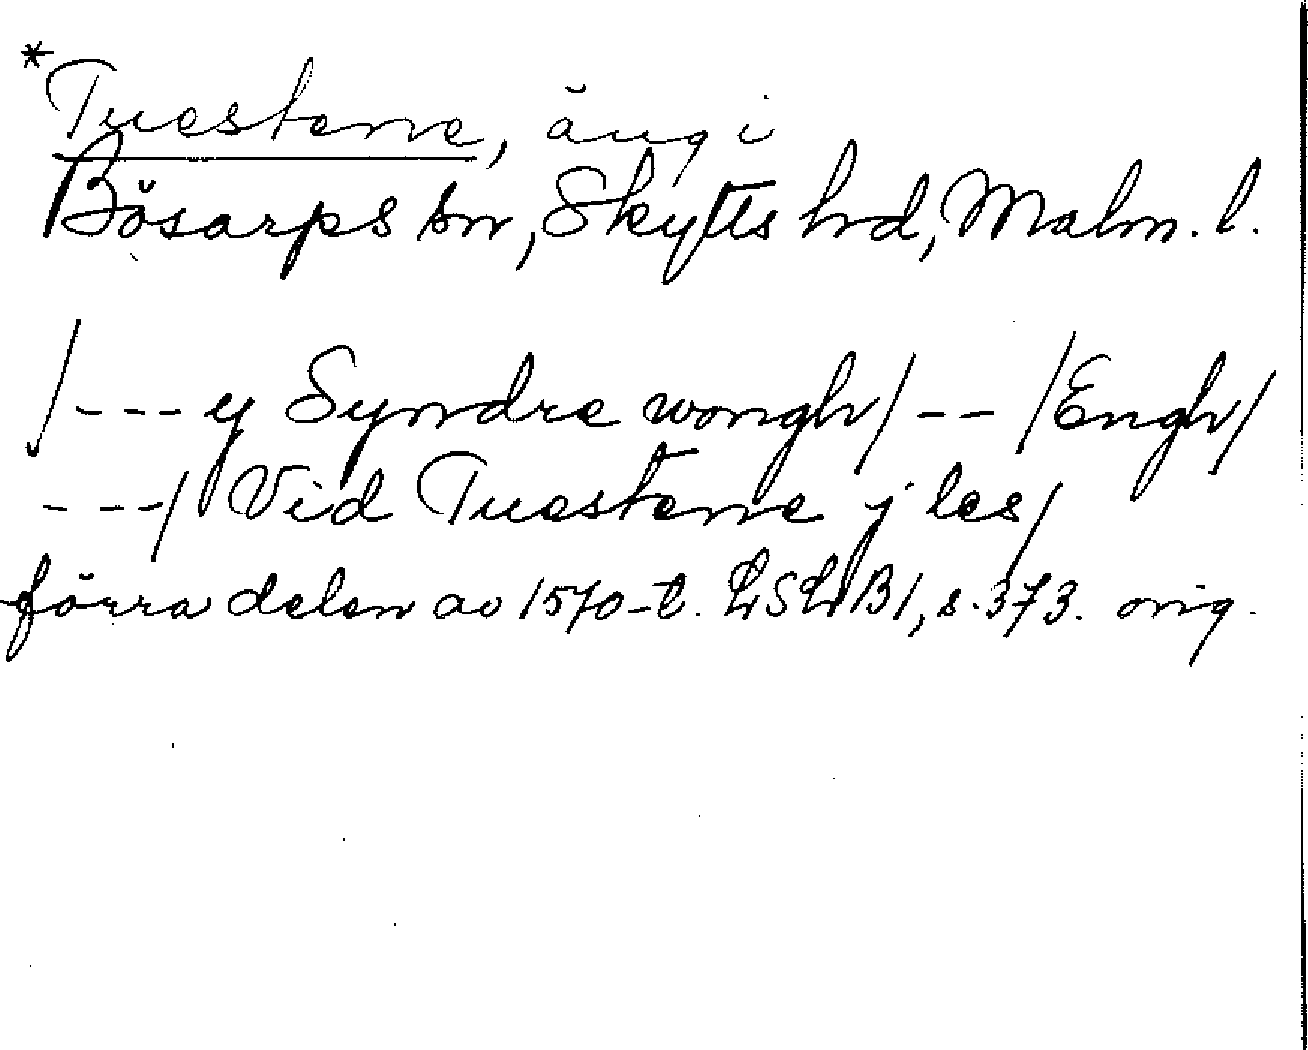 *Tuestene, äng i
Bösarps sn, Skytts hd, Malm. l.
/---y Syndre wongh/-- /Engh/
---/ Vid Tuestene j les/
förra delen av 1570-t. LSLB1, s. 373. orig.